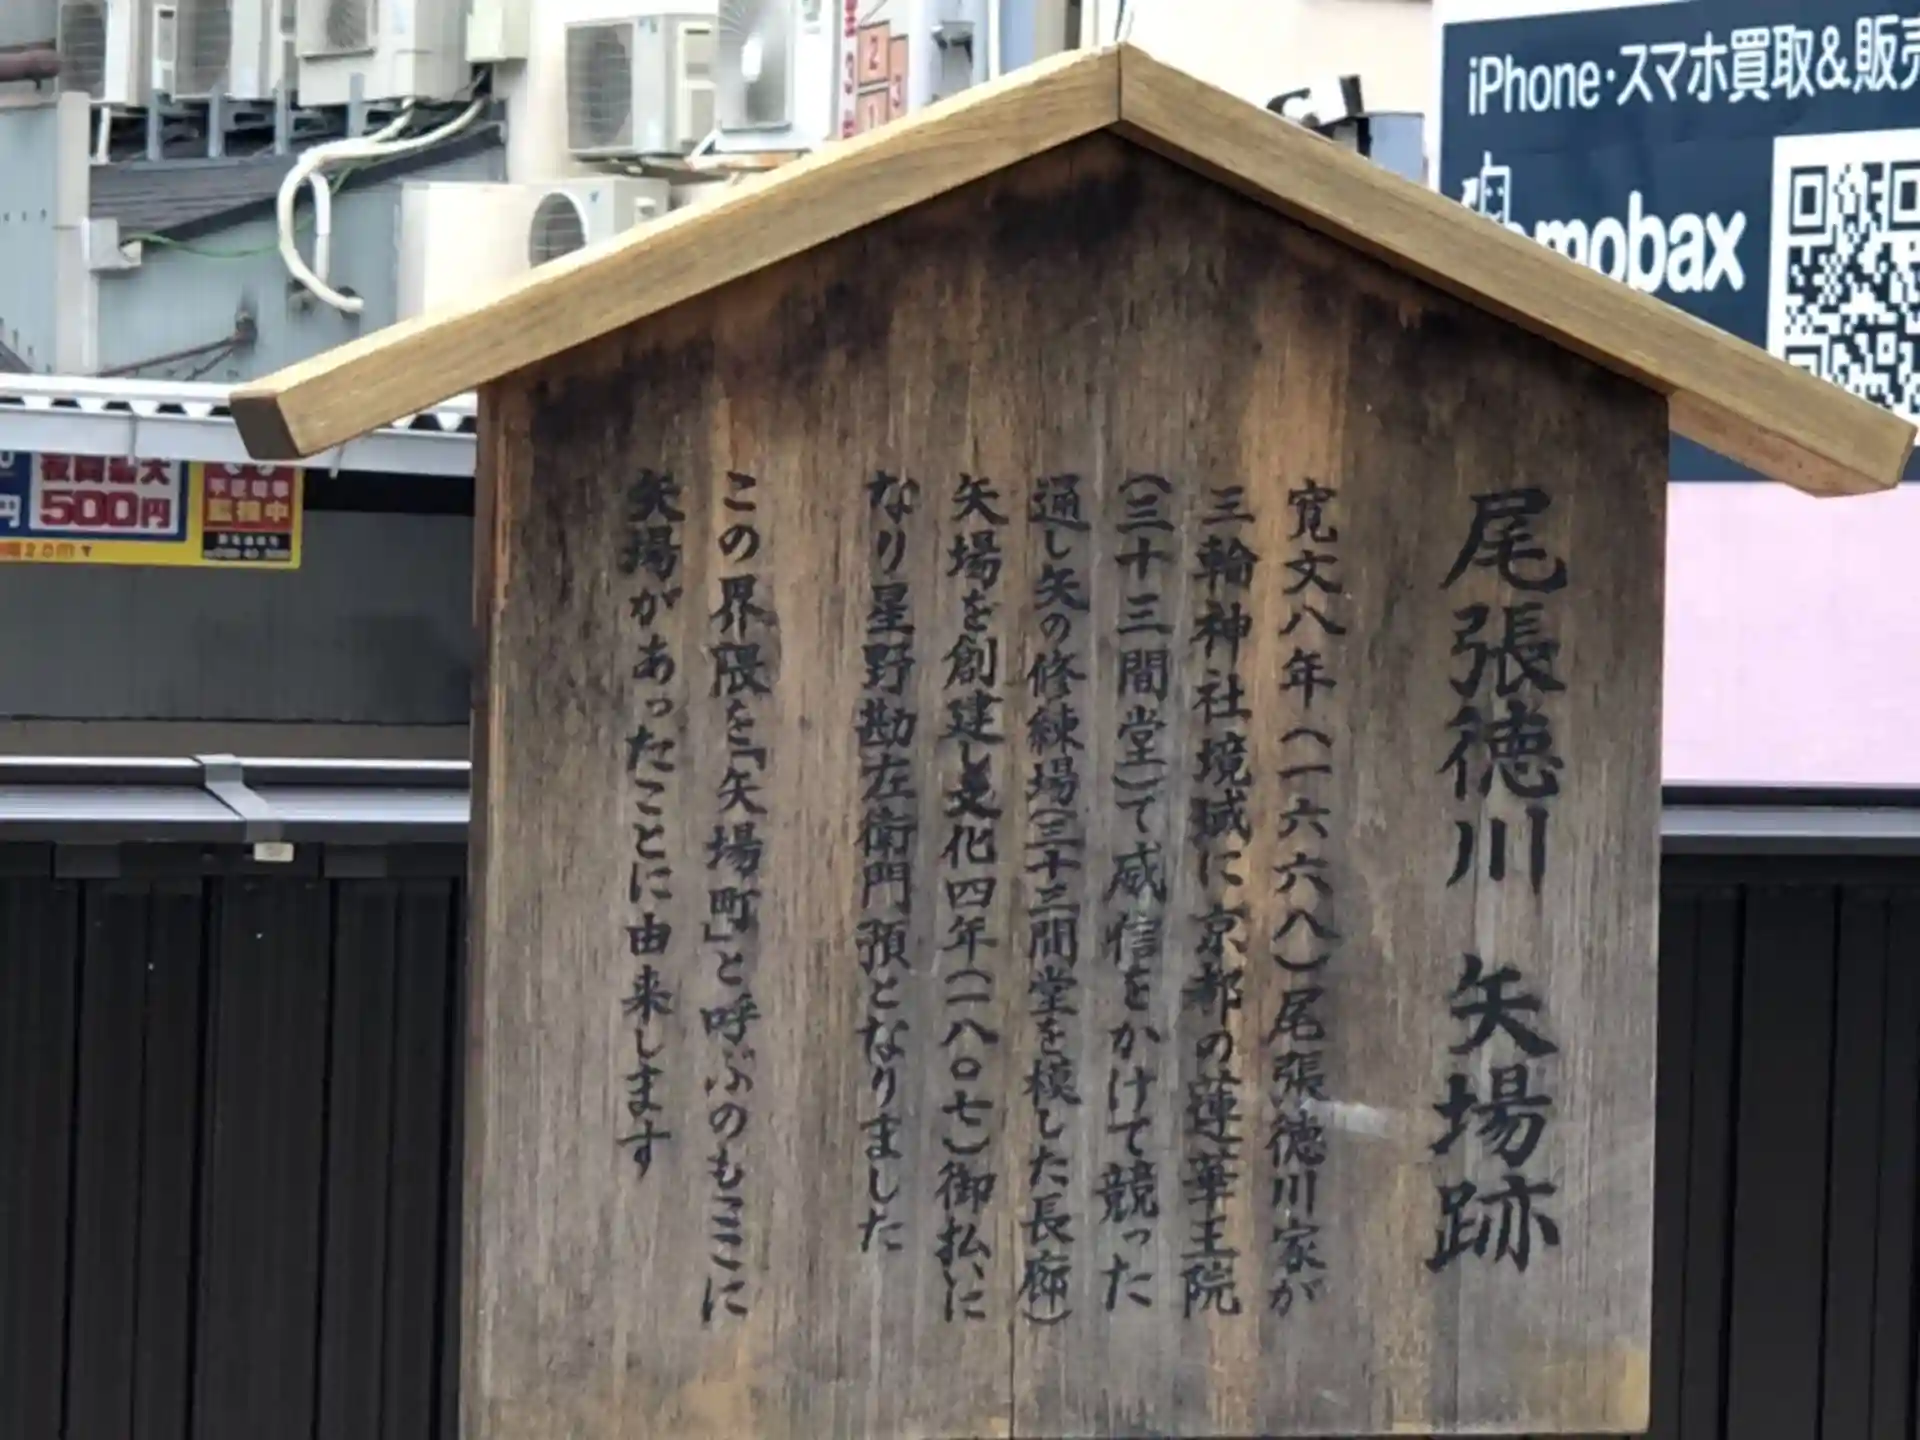 尾張徳川 矢場跡
寛文八年(一六六八)尾張徳川家が
三輪神社境域に京都の蓮華王院
(三十三間堂)て威信をかけて競った
通し矢の修練場(三十三間堂を模した長廊)
矢場を創建し文化四年(一八〇七)御払いに
なり星野勘左衛門預となりました
この界隈を「矢場町」と呼ぶのもここに
矢場があったことに由来します
iPhone・スマホ買取&販売
mobax
500円
監視中